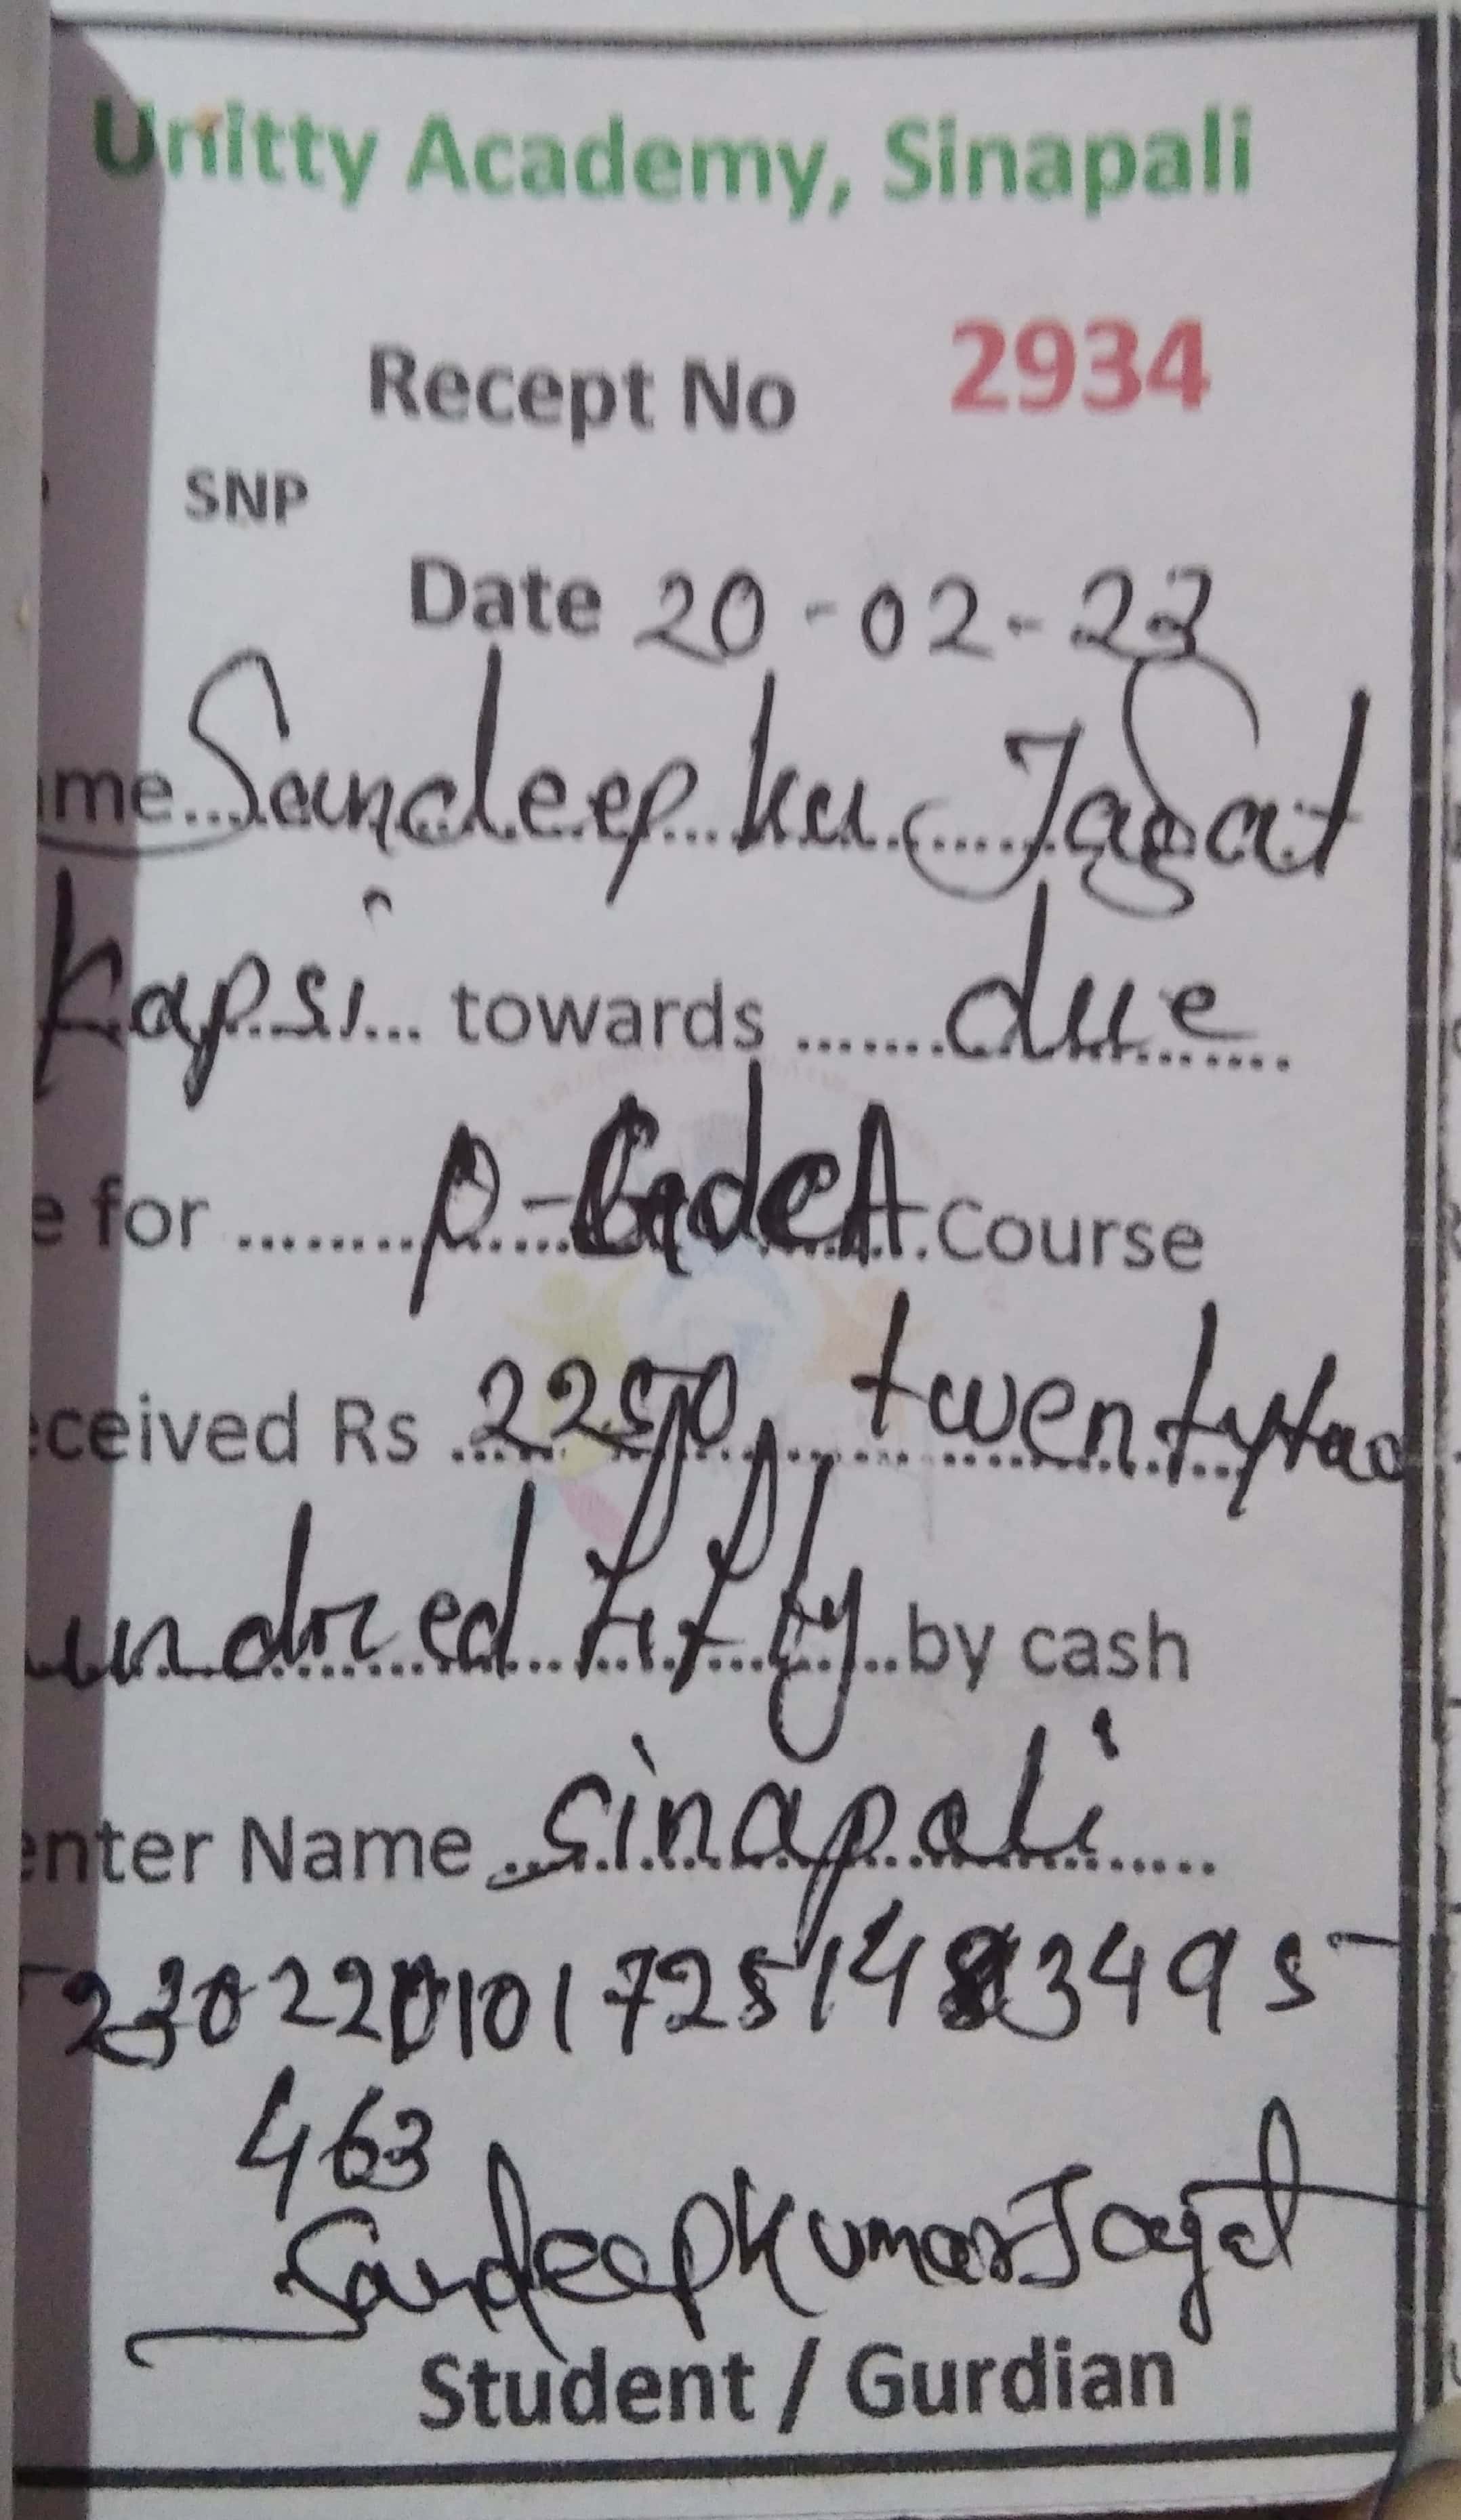 Unitty Academy, Sinapali
Recept No 2934
SNP
Date 20-02-23
ame Sandeep ku Jagat
Kapsi towards due
e for Course
eceived Rs 2250 twentytwo
undred fifty by cash
enter Name Sinapali
463
Sandeep Kumar Jagat
Student / Gurdian